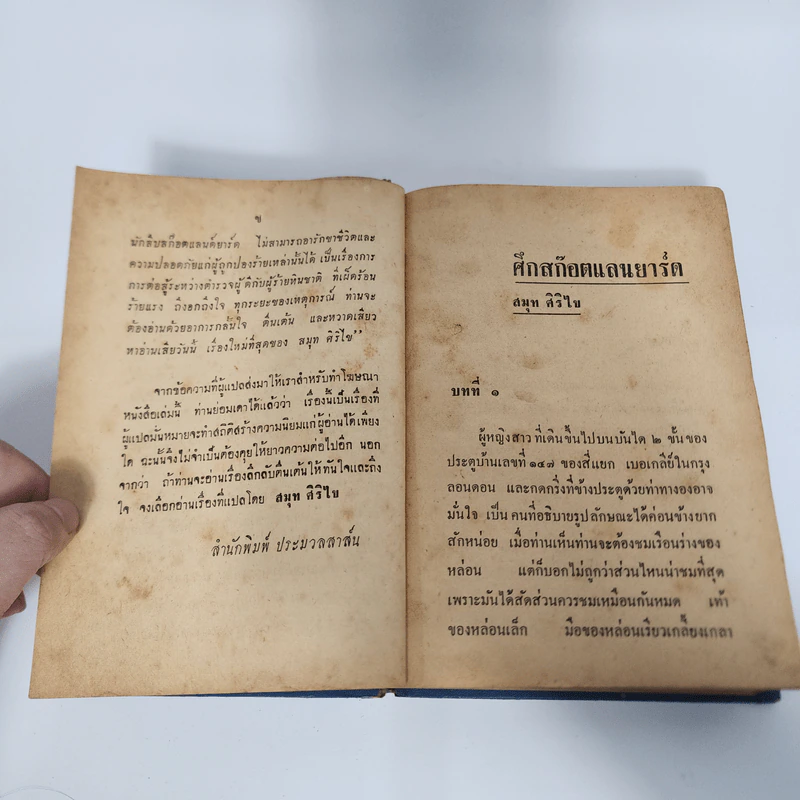 ข
นักสืบสก๊อตแลนด์ยาร์ด ไม่สามารถอารักขาชีวิตและ
ความปลอดภัยแก่ผู้ถูกปองร้ายเหล่านั้นได้ เป็นเรื่องการ
การต่อสู้ระหว่างตำรวจผู้ดีกับผู้ร้ายหินชาติ ที่เผ็ดร้อน
ร้ายแรง ถึงอกถึงใจ ทุกระยะของเหตุการณ์ ท่านจะ
ต้องอ่านด้วยอาการกลั้นใจ ตื่นเต้น และหวาดเสียว
หาอ่านเสียวันนี้ เรื่องใหม่ที่สุดของ สมุท ศิริไข''
จากข้อความที่ผู้แปลส่งมาให้เราสำหรับทำโฆษณา
หนังสือเล่มนี้ ท่านย่อมเดาได้แล้วว่า เรื่องนี้เป็นเรื่องที่
ผู้แปลมั่นหมายจะทำสถิติสร้างความนิยมแก่ผู้อ่านได้เพียง
ใด ฉะนั้นจึงไม่จำเป็นต้องคุยให้ยาวความต่อไปอีก นอก
จากว่า ถ้าท่านจะอ่านเรื่องลึกลับตื่นเต้นให้ทันใจและถึง
ใจ จงเลือกอ่านเรื่องที่แปลโดย สมุท ศิริไข
สำนักพิมพ์ ประมวลสาส์น
ศึกสก๊อตแลนยาร์ด
สมุท ศิริไข
บทที่ ๑
ผู้หญิงสาว ที่เดินขึ้นไปบนบันได ๒ ขั้น ของ
ประตูบ้านเลขที่ ๑๔๗ ของสี่แยก เบอเกลีย์ในกรุง
ลอนดอน และกดกริ่งที่ข้างประตูด้วยท่าทางองอาจ
มั่นใจ เป็น คนที่อธิบายรูปลักษณะได้ค่อนข้างยาก
สักหน่อย เมื่อท่านเห็นท่านจะต้องชมเรือนร่างของ
หล่อน แต่ก็บอกไม่ถูกว่าส่วนไหนน่าชมที่สุด
เพราะมันได้สัดส่วนควรชมเหมือนกันหมด เท้า
ของหล่อนเล็ก มือของหล่อนเรียวเกลี้ยงเกลา